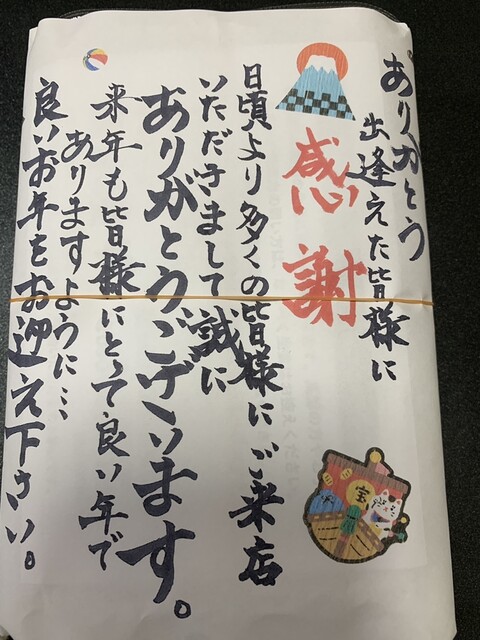 ありがとう
出逢えた皆様に
感謝
日頃より多くの皆様にご来店
いただきまして誠に
ありがとうございます。
来年も皆様にとって良い年で
ありますように…
良いお年をお迎え下さい。
宝